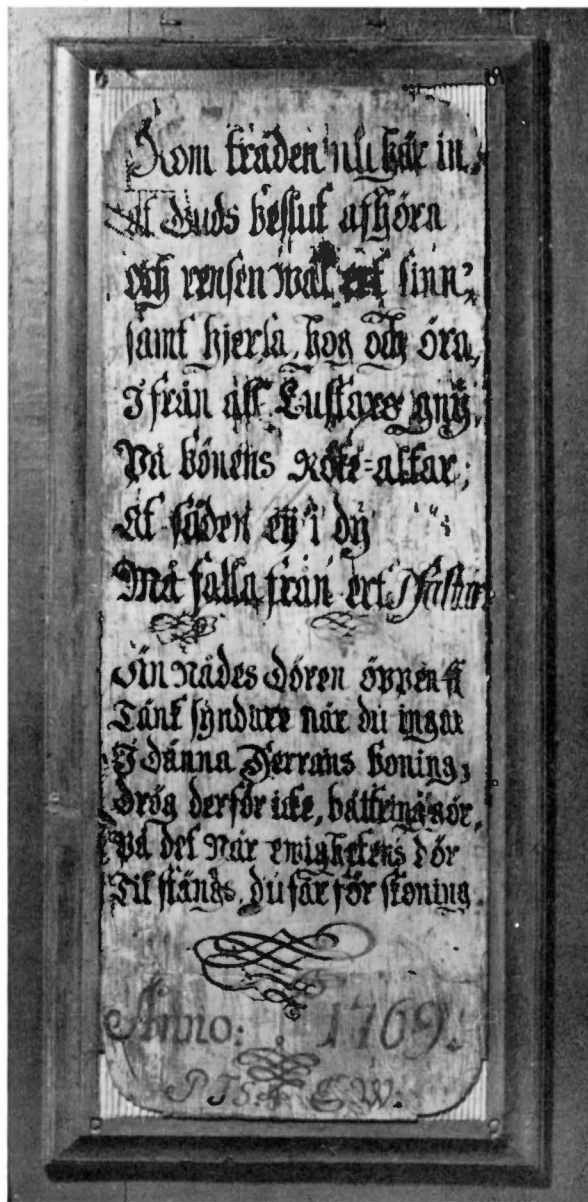 Kom träden nu här in,
At Guds beslut afhöra
och rensen wäl ert sinn,
samt hjerta, hog och öra,
Ifrån all Lustars gny,
På bönens Röke=altar;
At säden ey i dy
Må falla från ert
Än Nådes dören öppen
Tänk syndare när du ingår
I dänna Herrans boning,
Drög derför icke, bättring gör,
På det När ewighetens dör
Til stängs, du får förskoning.
Anno: 1769.
C.W.